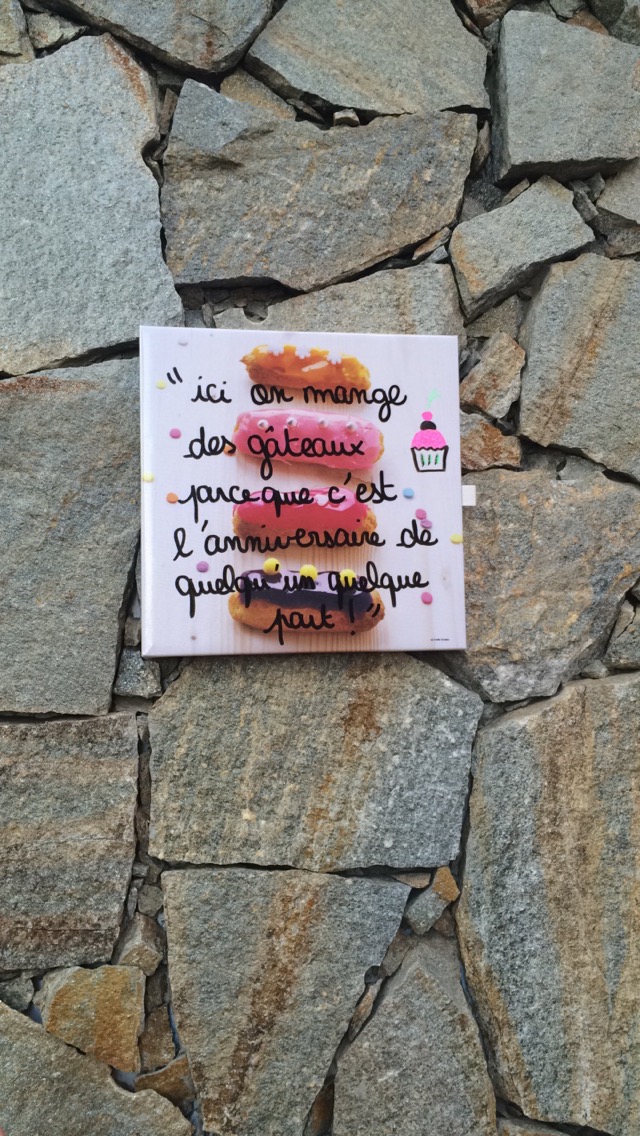 "ici on mange
des gâteaux
parce que c'est
l'anniversaire de
quelqu'un quelque
part !"